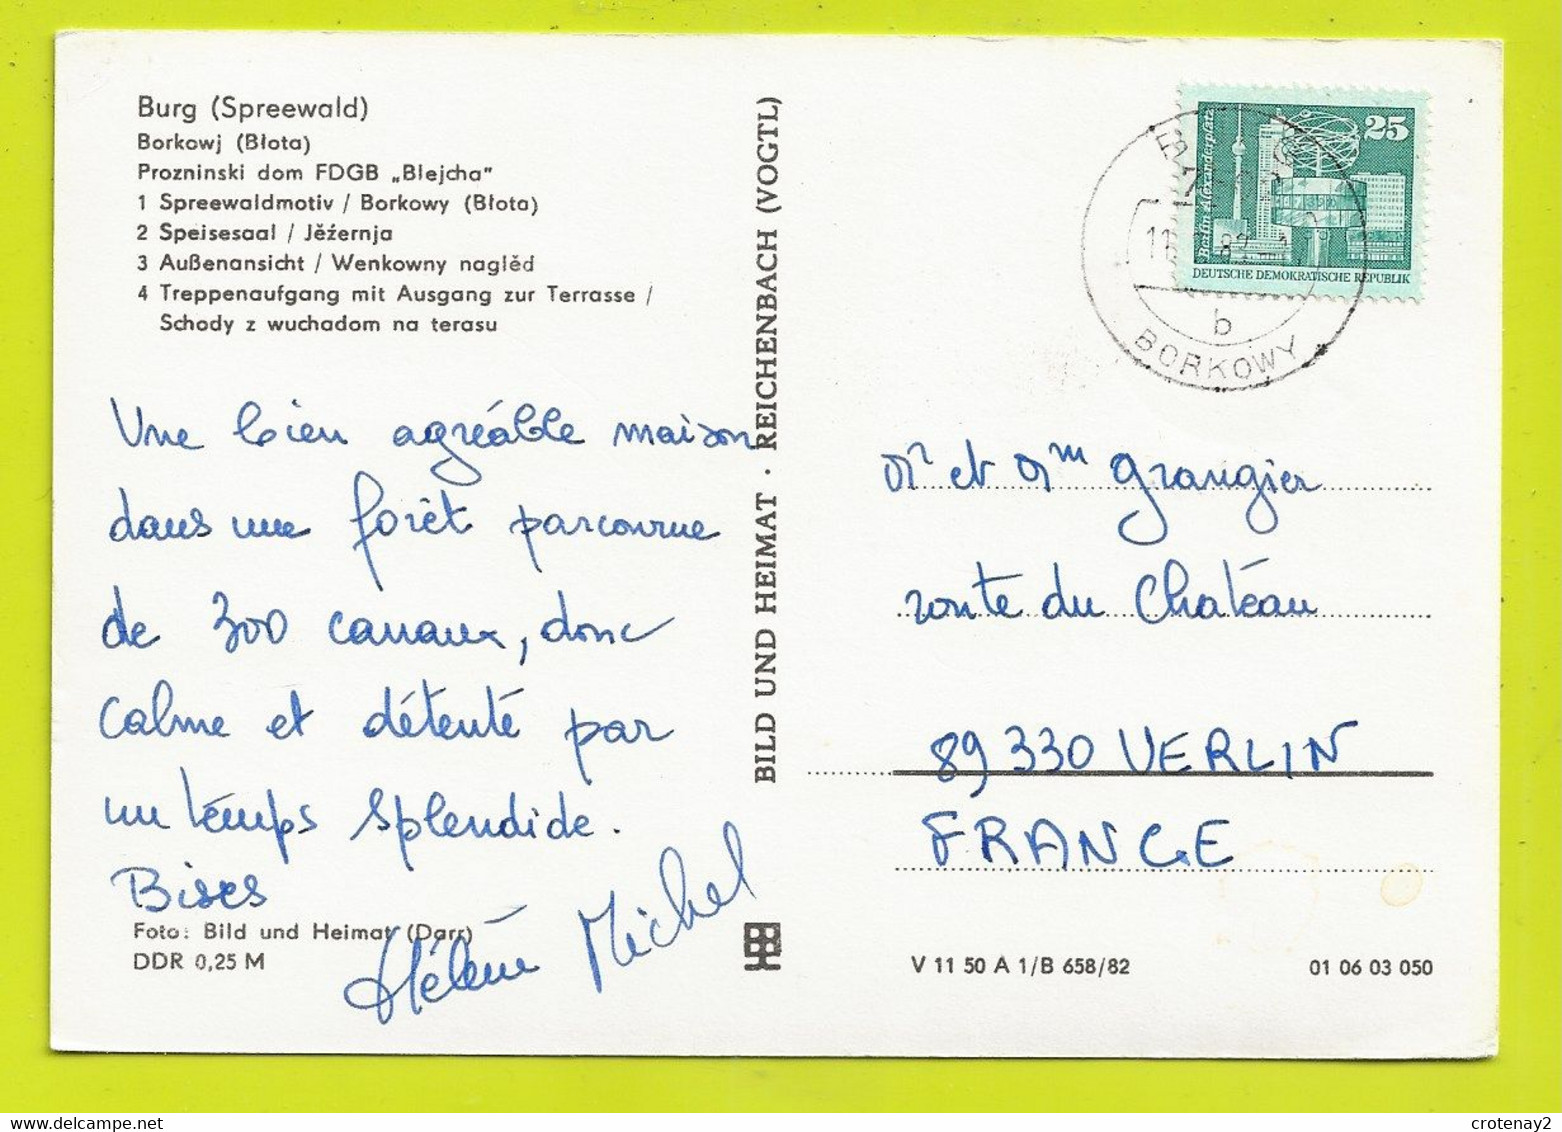 Burg (Spreewald)
Borkowj (Błota)
Prozninski dom FDGB „Blejcha"
1 Spreewaldmotiv / Borkowy (Błota)
2 Speisesaal / Jěźernja
3 Außenansicht / Wenkowny naglěd
4 Treppenaufgang mit Ausgang zur Terrasse /
Schody z wuchadom na terasu
Une bien agréable maison
dans une forêt parcourue
de 300 canaux, donc
calme et détente par
un temps splendide.
Bises
Hélène Michel
Foto: Bild und Heimat (Darr)
DDR 0,25 M
BILD UND HEIMAT · REICHENBACH (VOGTL)
Berlin, Alexanderplatz
25
DEUTSCHE DEMOKRATISCHE REPUBLIK
b
BORKOWY
Mr et Mm Grangier
route du Château
89330 VERLIN
FRANCE
V 11 50 A 1/B 658/82
01 06 03 050
crotenay2